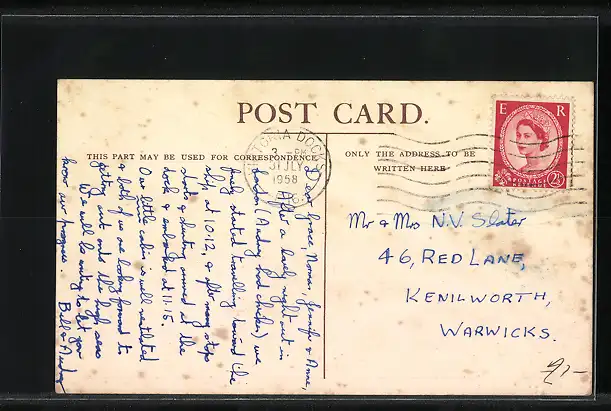 POST CARD.
THIS PART MAY BE USED FOR CORRESPONDENCE
ONLY THE ADDRESS TO BE
WRITTEN HERE
VICTORIA DOCKS
3 - PM
31 JLY
1958
E R
POSTAGE
REVENUE
2½
Dear Grace, Norm, Jennifer & Anne,
After a lovely night out in
London (Audrey had chicken) we
finally started travelling toward the
ship at 10.12, & after many stops
starts & shunting arrived at the
dock & embarked at 11.15.
Our little cabin is well ventilated
& both of us are looking forward to
getting out onto the high seas
We will be writing to let you
know our progress.
Bill & Audrey
Mr & Mrs N.V. Slater
46, RED LANE,
KENILWORTH,
WARWICKS.